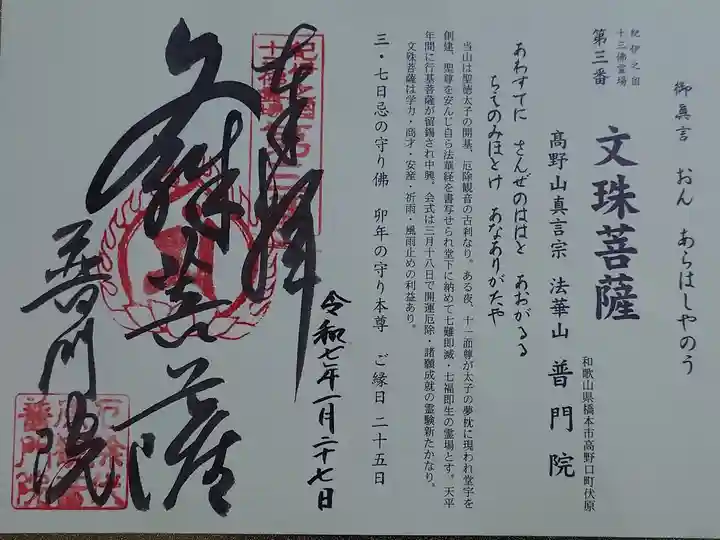 御真言　おん　あらはしやのう
紀伊之国
十三佛霊場
第三番　文珠菩薩
和歌山県橋本市高野口町伏原
高野山真言宗　法華山　普門院
あわすてに　さんぜのははと　あおがるる
ちそのみほとけ　あなありがたや
当山は聖徳太子の開基、厄除観音の古刹なり。ある夜、十一面尊が太子の夢枕に現われ堂宇を
創建、聖尊を安んじ自ら法華経を書写せられ堂下に納めて七難即滅・七福即生の霊場とす。天平
年間に行基菩薩が留錫され中興、会式は三月十八日で開運厄除・諸願成就の霊験新たかなり。
文殊菩薩は学力・商才・安産・祈雨・風雨止めの利益あり。
三・七日忌の守り佛　卯年の守り本尊　ご縁日　二十五日
令和七年一月二十七日
奉拝
文殊菩薩
普門院